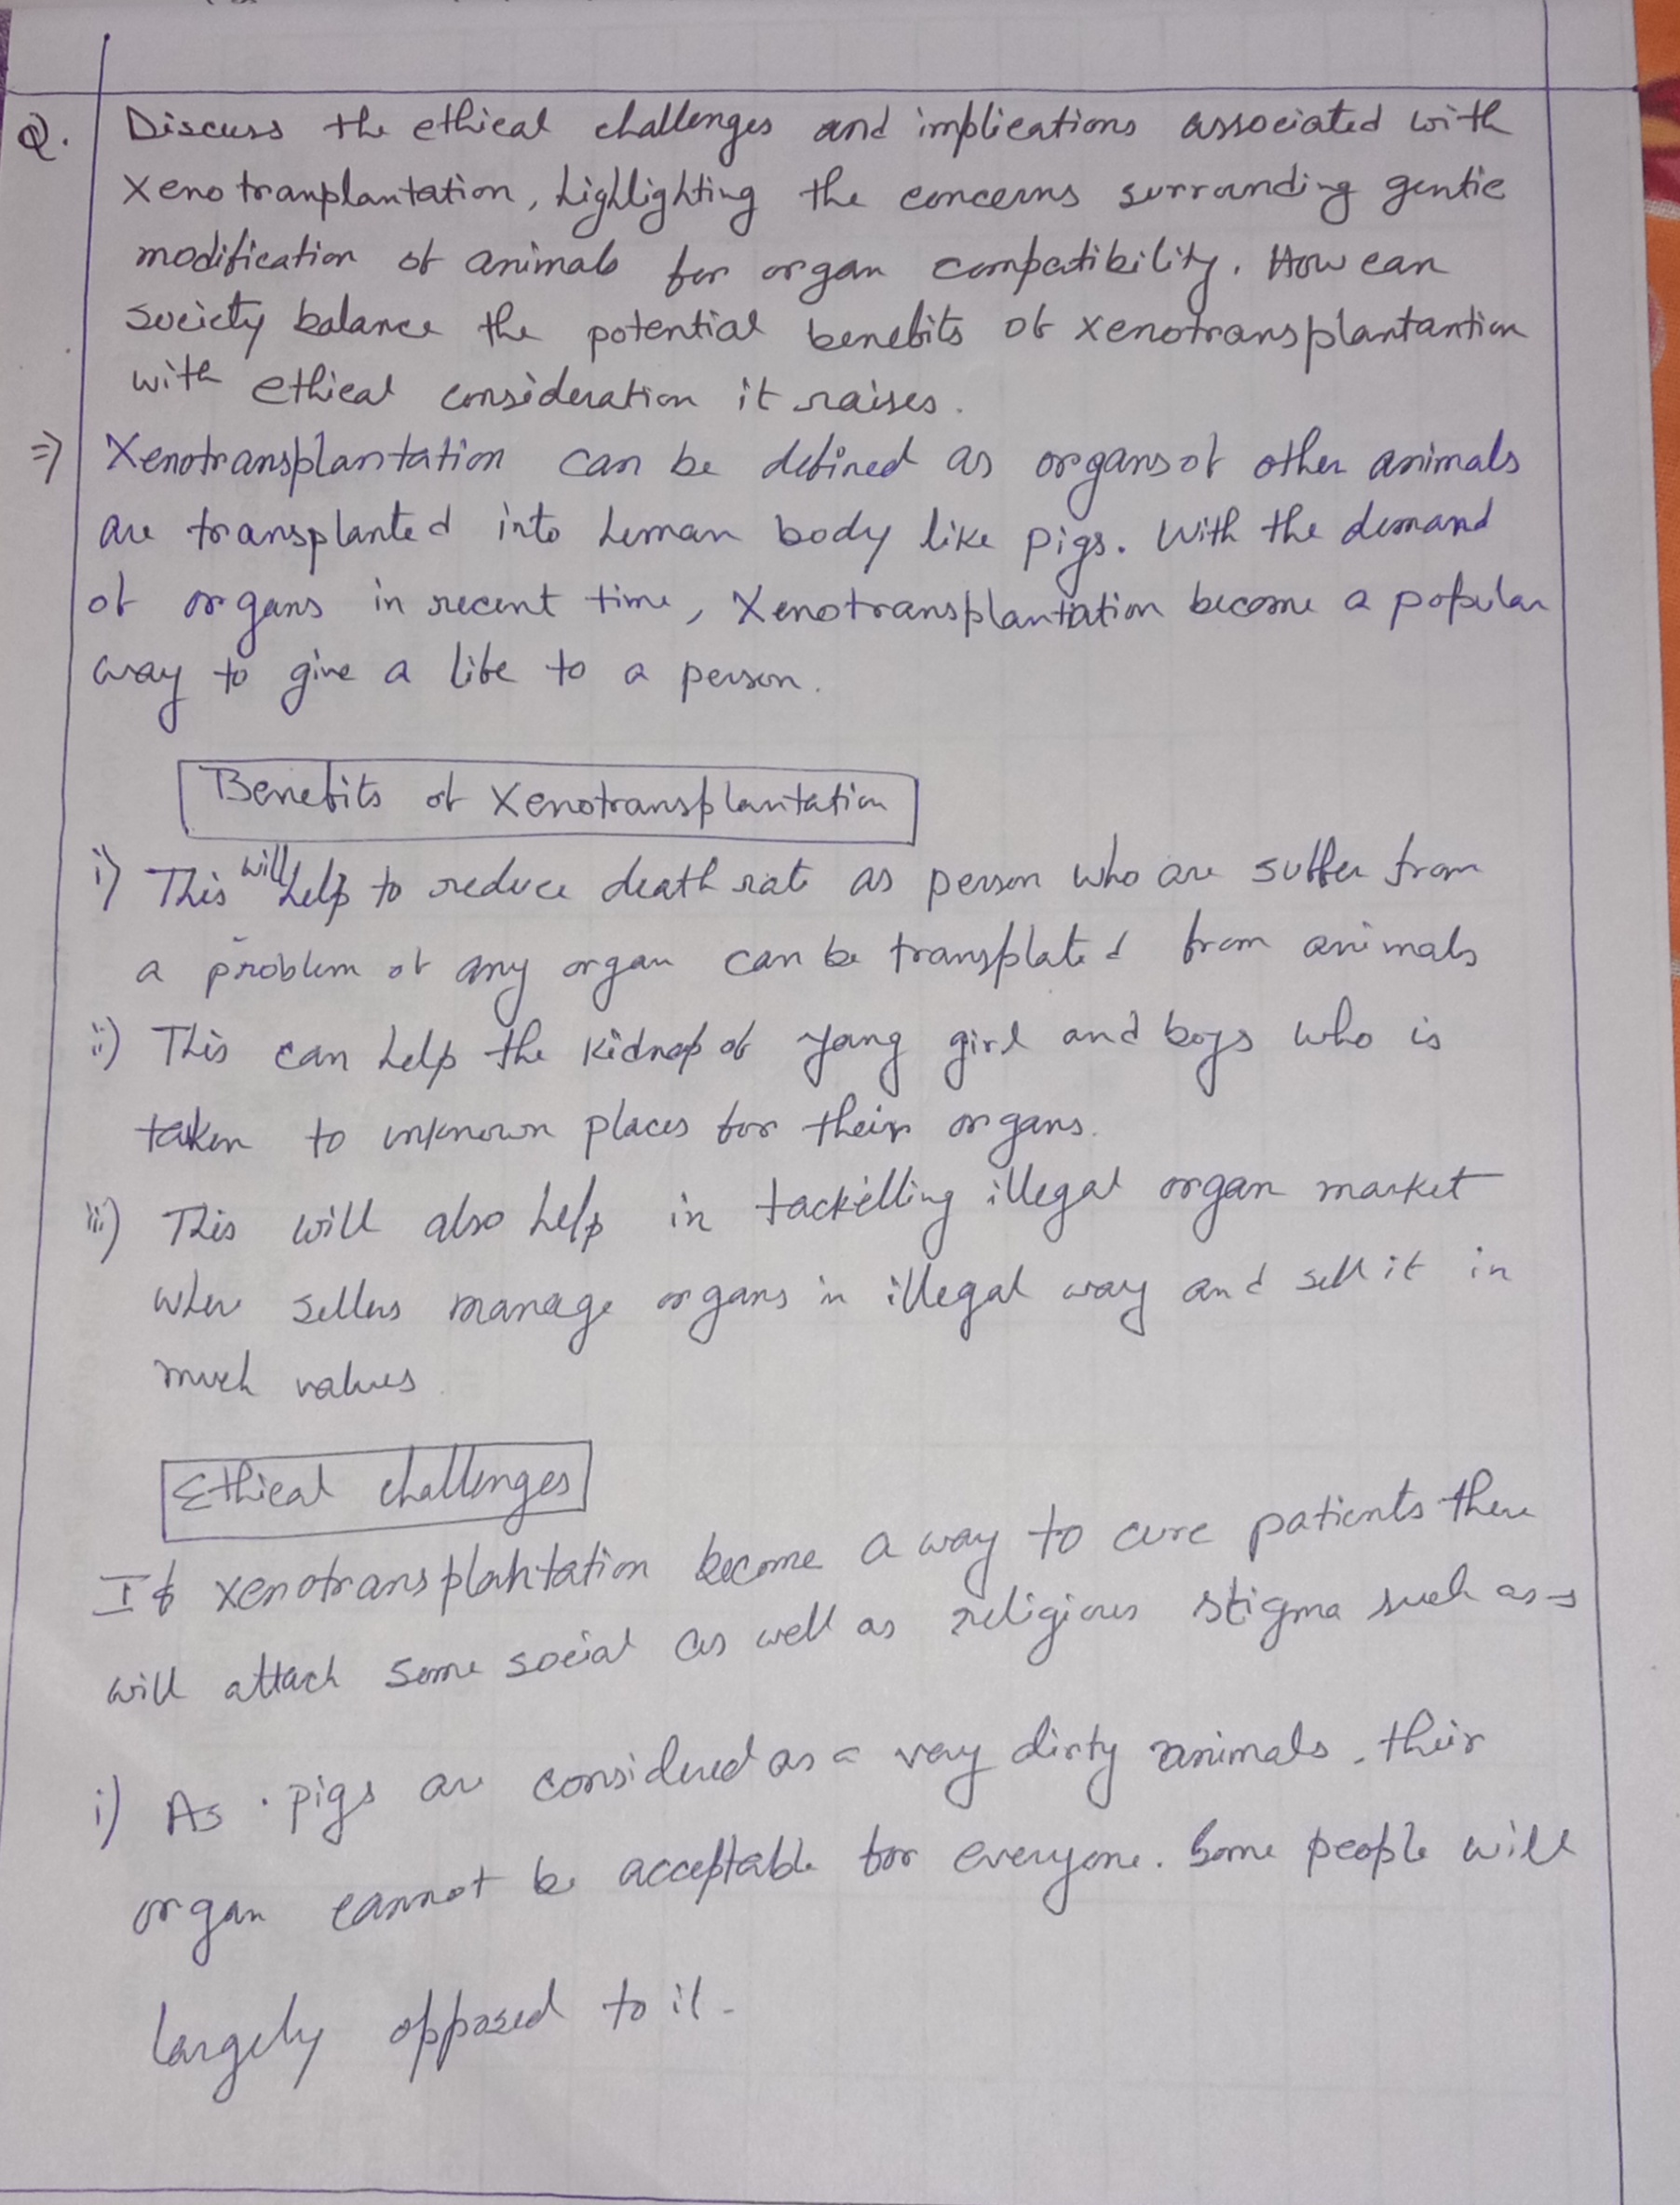 Q. Discuss the ethical challenges and implications associated with
Xenotranplantation, highlighting the concerns surrounding gentic
modification of animals for organ compatibility. How can
society balance the potential benefits of xenotransplantantion
with ethical consideration it raises.
=> Xenotransplantation can be defined as organs of other animals
are transplanted into human body like pigs. With the demand
of organs in recent time, Xenotransplantation become a popular
way to give a life to a person.
Benefits of Xenotransplantation
i) This will help to reduce death rate as person who are suffer from
a problem of any organ can be transplated from animals
ii) This can help the kidnap of yang girl and boys who is
taken to unknown places for their organs.
iii) This will also help in tackelling illegal organ market
where sellers manage organs in illegal way and sell it in
much values.
Ethical challenges
If xenotransplantation become a way to cure patients there
will attach some social as well as religious stigma such as →
i) As pigs are considered as a very dirty animals, their
organ cannot be acceptable for everyone. Some people will
largely opposed to it.